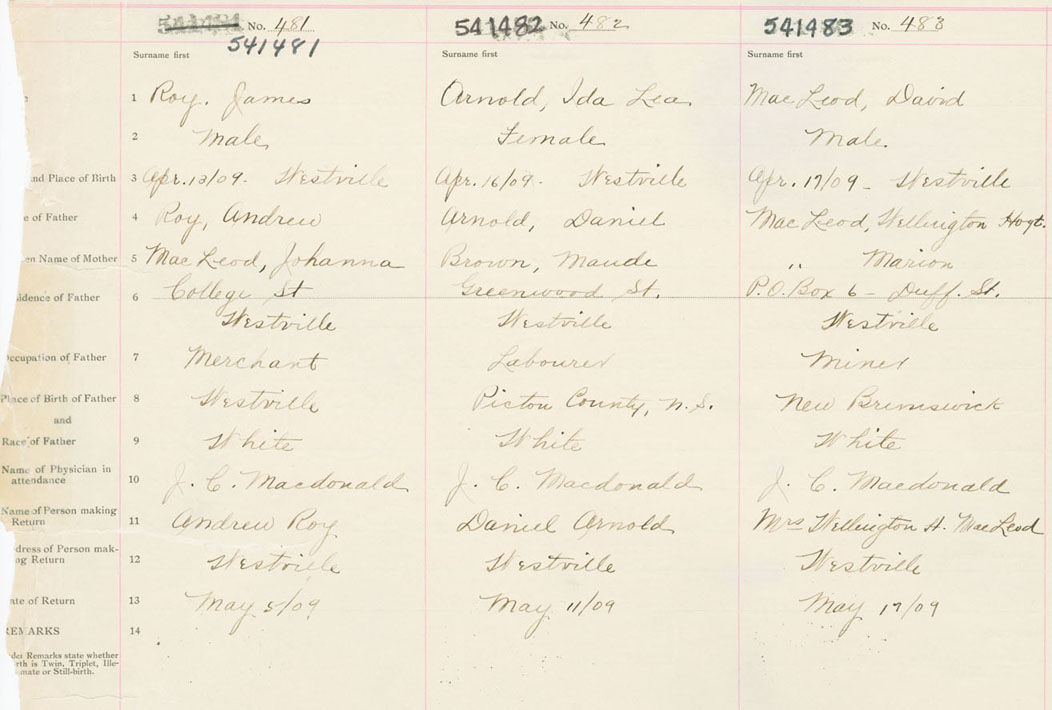 No. 481 541482 No. 482 541483 No. 483
541481
Surname first Surname first Surname first
1 Roy, James Arnold, Ida Lea MacLeod, David
2 Male Female Male.
and Place of Birth 3 Apr. 13/09. Westville Apr. 16/09. Westville Apr. 17/09 - Westville
e of Father 4 Roy, Andrew Arnold, Daniel MacLeod, Wellington Hoyt.
en Name of Mother 5 MacLeod, Johanna Brown, Maude " Marion
idence of Father 6 College St Greenwood St. P.O. Box 6 - Duff. St.
Westville Westville Westville
Occupation of Father 7 Merchant Labourer Miner
Place of Birth of Father 8 Westville Pictou County, N.S. New Brunswick
and
Race of Father 9 White White White
Name of Physician in
attendance 10 J. C. Macdonald J. C. Macdonald J. C. Macdonald
Name of Person making
Return 11 Andrew Roy Daniel Arnold Mrs Wellington H. MacLeod
dress of Person mak-
ng Return 12 Westville Westville Westville
ate of Return 13 May 5/09 May 11/09 May 17/09
REMARKS 14
der Remarks state whether
rth is Twin, Triplet, Ille-
mate or Still-birth.